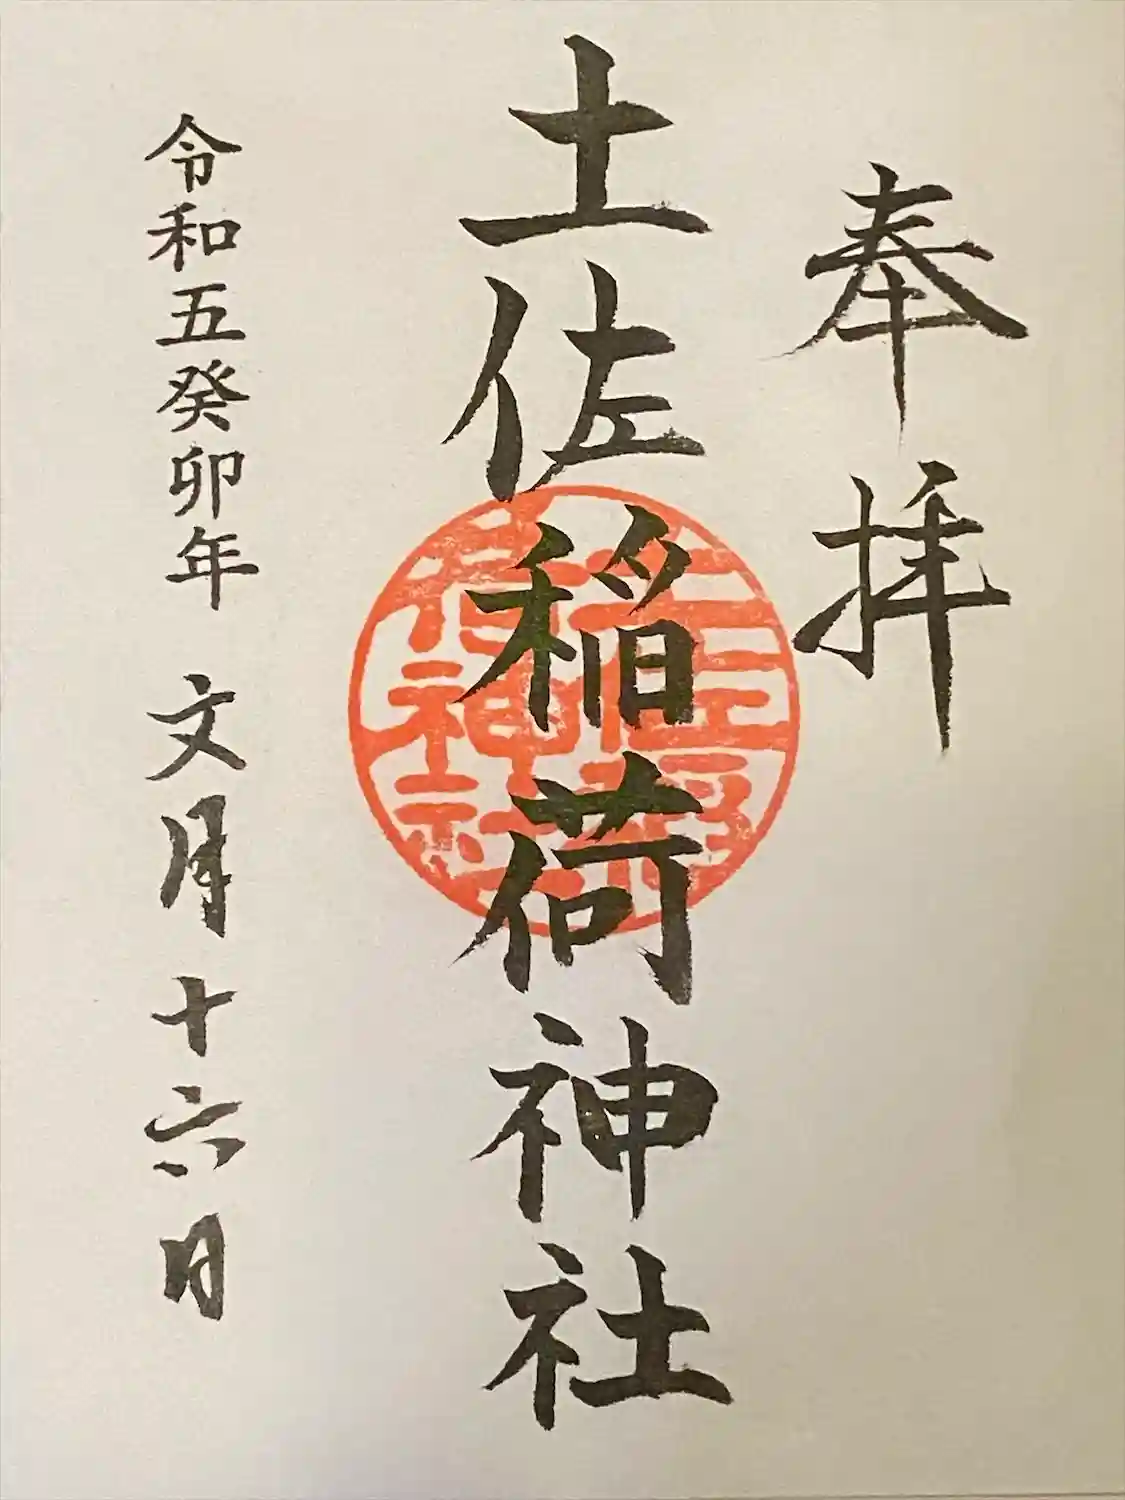 奉拝
土佐稲荷神社
令和五癸卯年 文月十六日
土佐稲荷神社